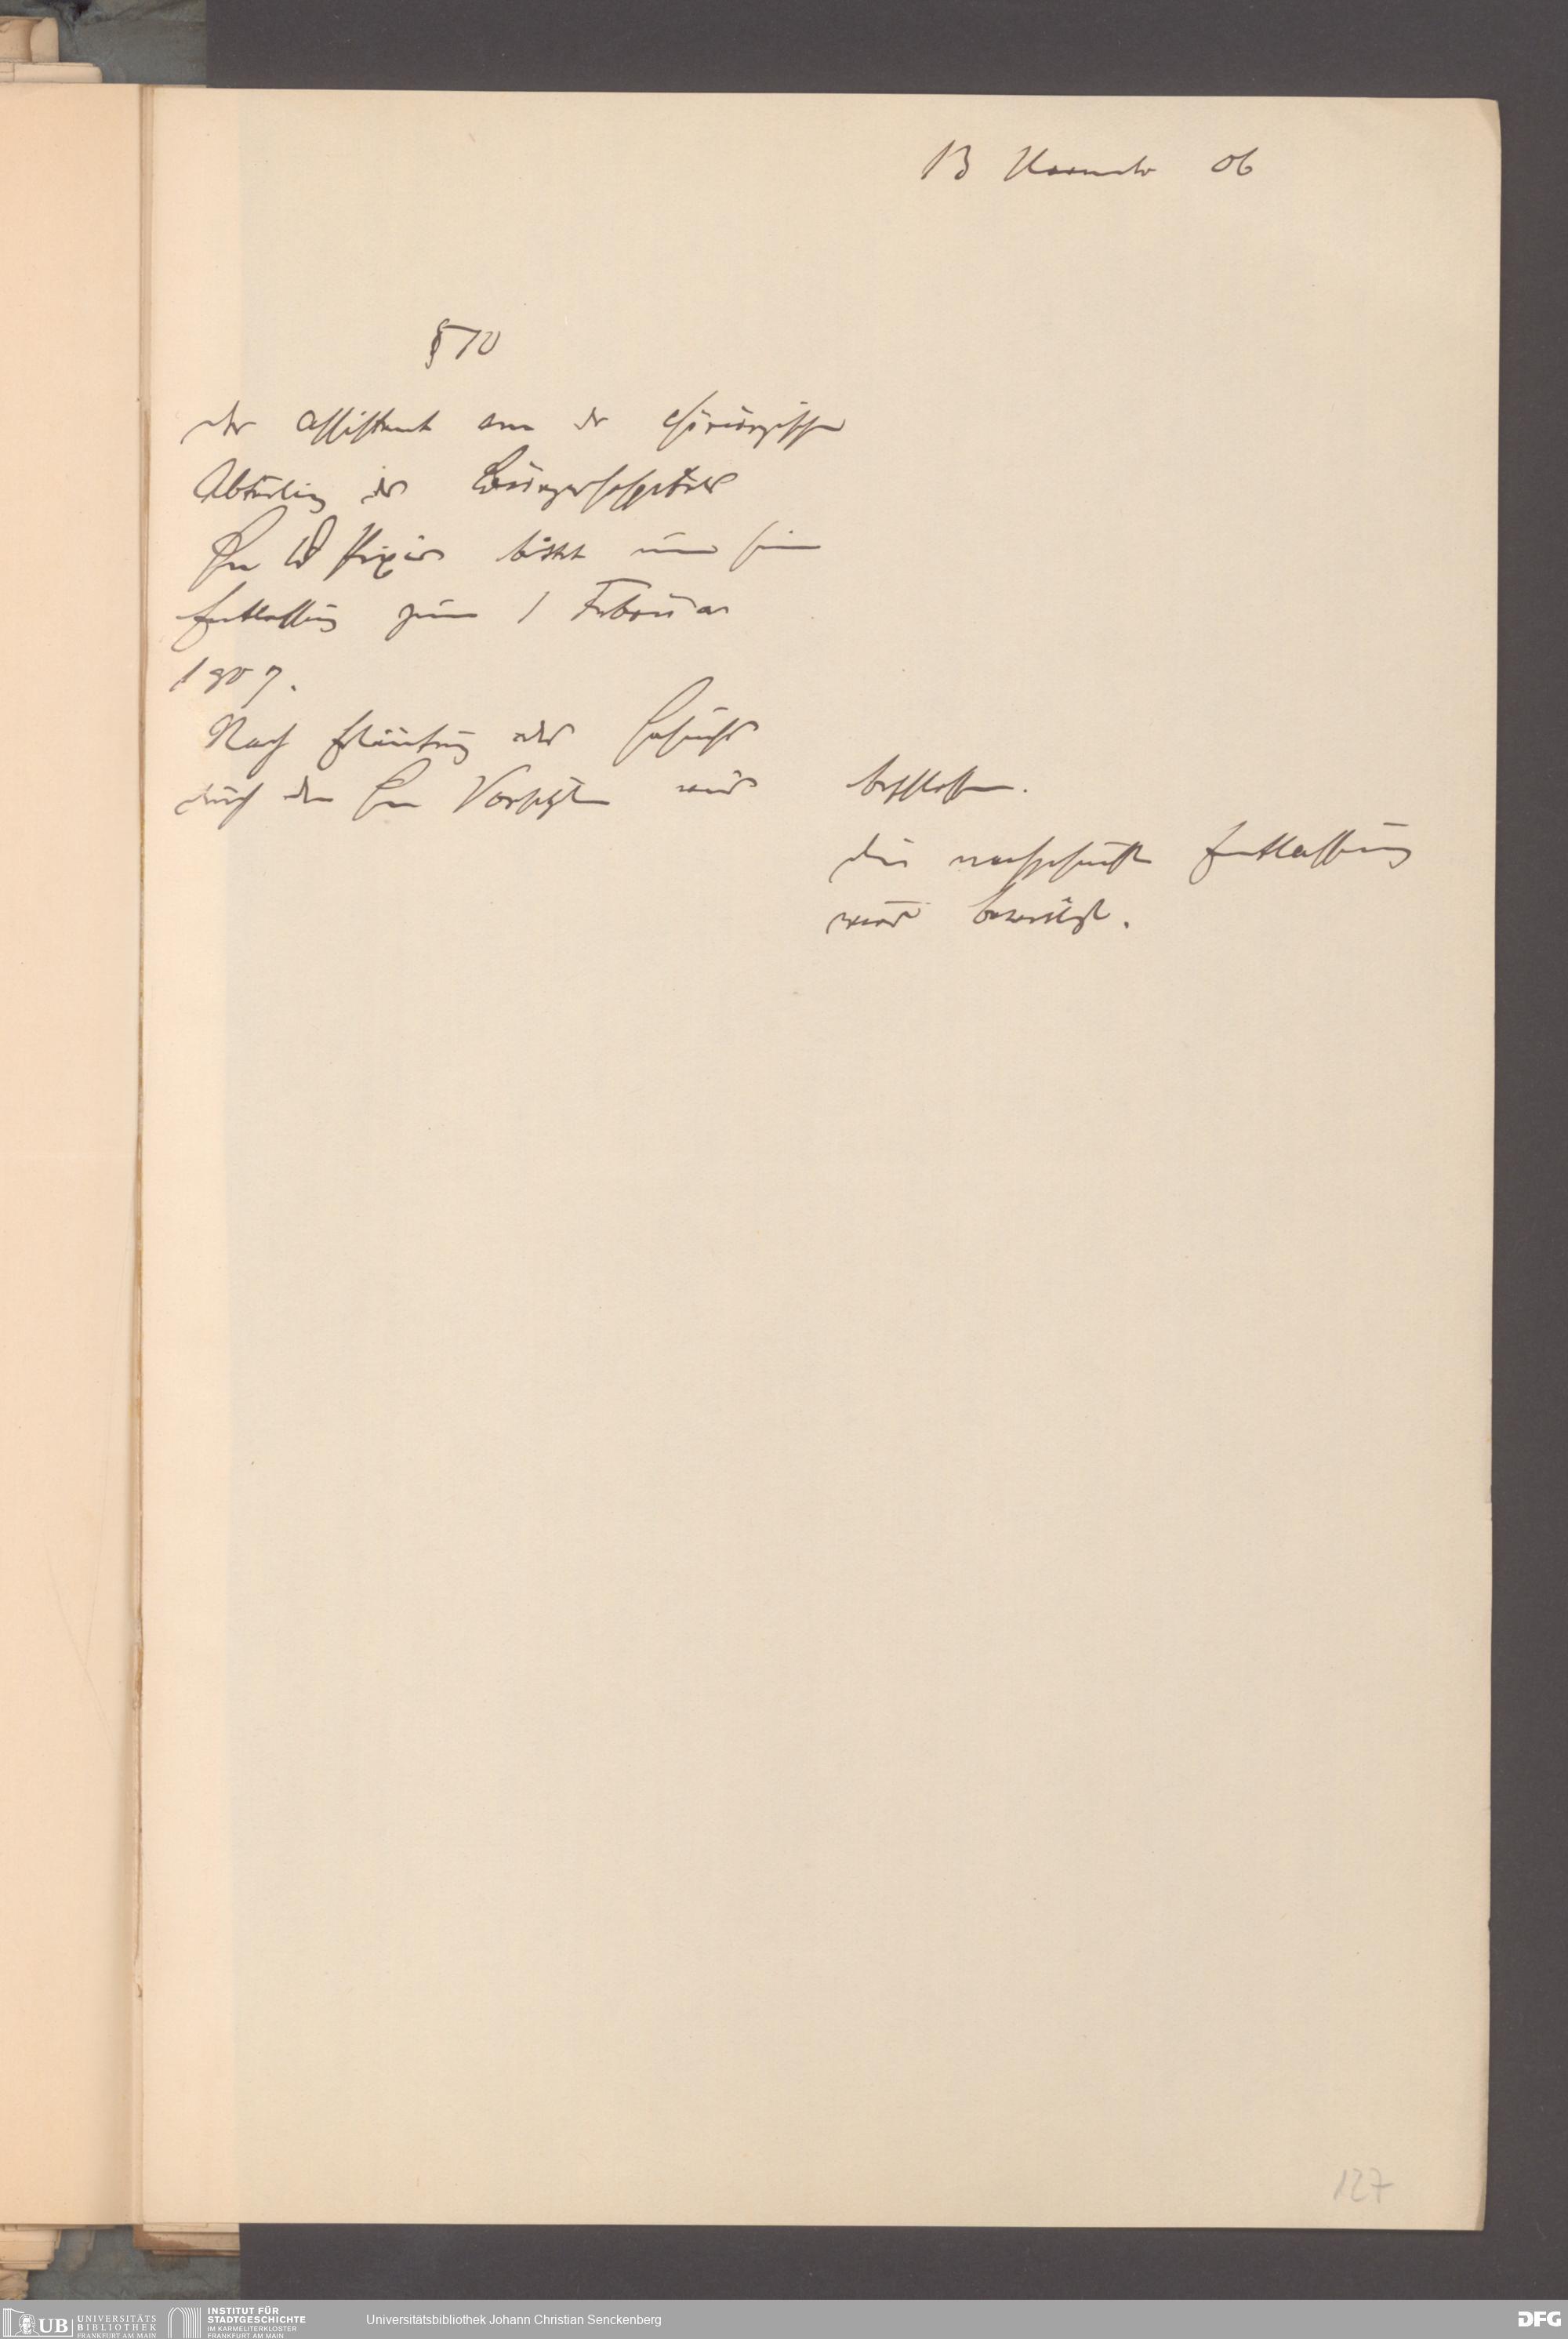 13 November 06
§ 70
der Assistent an der chirurgischen
Abteilung des Bürgerhospitals
Herr bittet um seine
Entlassung zum 1 Februar
1907.
Nach Erläuterung des Gesuchs
durch den Herrn Vorsitzenden wird beschlossen.
die nachgesuchte Entlassung
wird bewilligt.
127
UB UNIVERSITÄTS
BIBLIOTHEK
FRANKFURT AM MAIN
INSTITUT FÜR
STADTGESCHICHTE
IM KARMELITERKLOSTER
FRANKFURT AM MAIN
Universitätsbibliothek Johann Christian Senckenberg
DFG